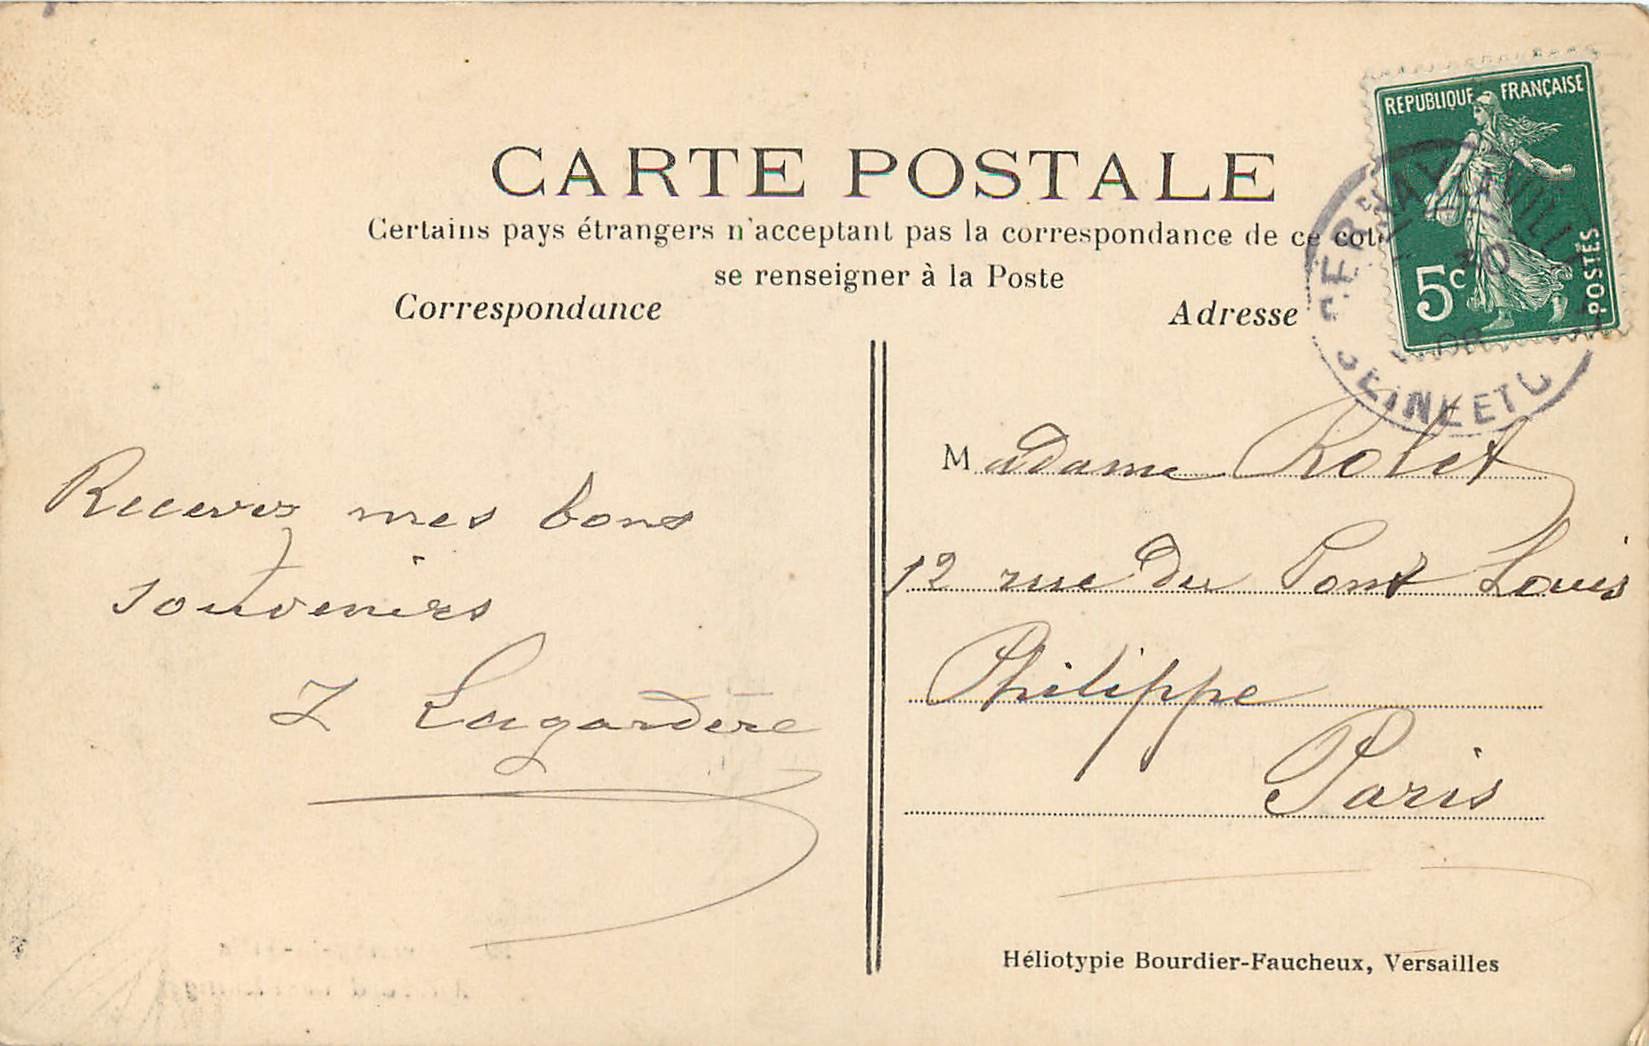 CARTE POSTALE
Certains pays étrangers n'acceptant pas la correspondance de ce coté
se renseigner à la Poste
Correspondance
Adresse
REPUBLIQUE FRANÇAISE
5c
POSTES
CERNAY LA VILLE
SEINE ET O
Recevez mes bons
souvenirs
Lagardère
Madame Rolet
12 rue du Pont Louis
Philippe
Paris
Héliotypie Bourdier-Faucheux, Versailles